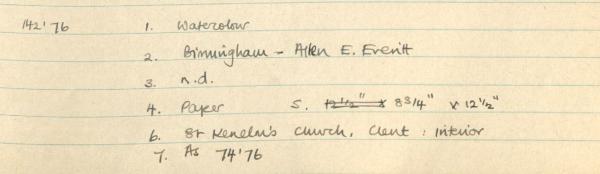 142'76 1. Watercolour
2. Birmingham - Allen E. Everitt
3. n.d.
4. Paper 5. 12 1/2" x 8 3/4" x 12 1/2"
6. St Kenelm's Church, Clent : interior
7. As 74'76